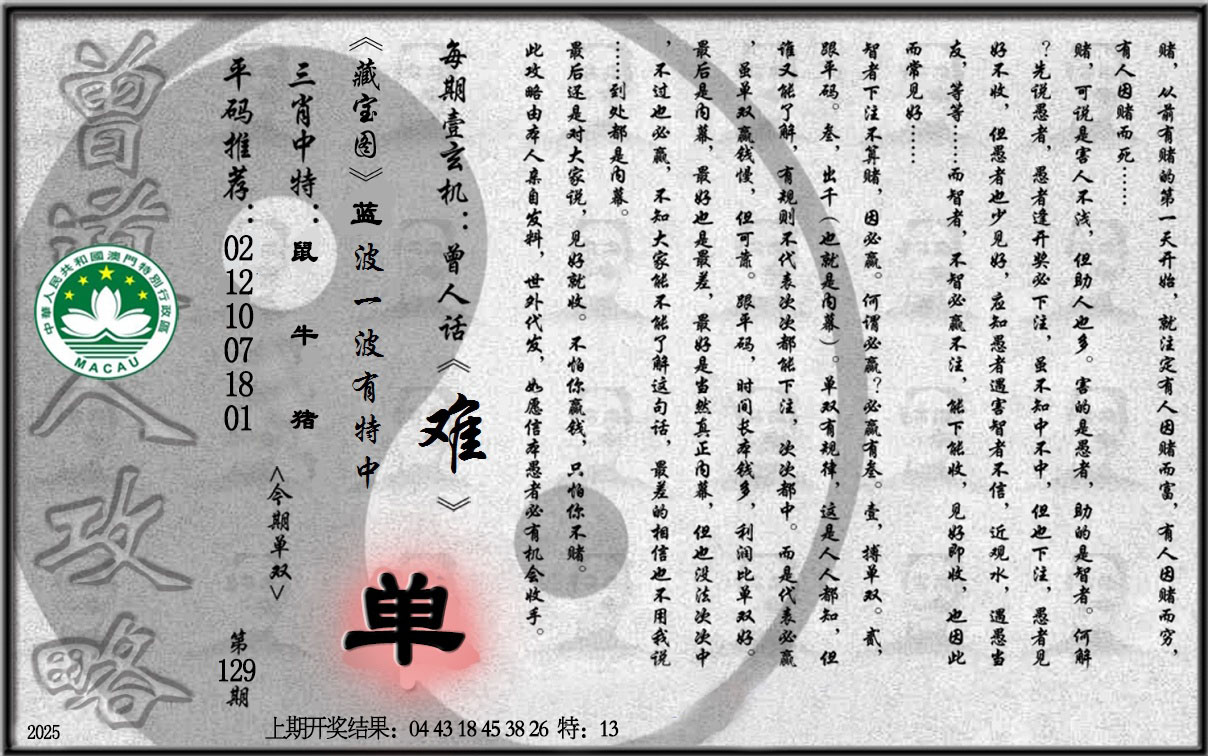 赌，从前有赌的第一天开始，就注定有人因赌而富，有人因赌而穷，
有人因赌而死……
赌，可说是害人不浅，但助人也多。害的是愚者，助的是智者。何解
？先说愚者，愚者逢开奖必下注，虽不知中不中，但也下注，愚者见
好不收，但愚者也少见好，应知愚者遇害智者不信，近观水，遇愚当
友，等等……而智者，不智必赢不注，能下能收，见好即收，也因此
而常见好……
智者下注不算赌，因必赢。何谓必赢？必赢有叁。壹，搏单双。贰，
跟平码。叁，出千（也就是内幕）。单双有规律，这是人人都知，但
谁又能了解，有规则不代表次次都能下注，次次都中。而是代表必赢
，虽单双赢钱慢，但可靠。跟平码，时间长本钱多，利润比单双好。
最后是内幕，最好也是最差，最好是当然真正内幕，但也没法次次中
，不过也必赢，不知大家能不能了解这句话，最差的相信也不用我说
……到处都是内幕。
最后还是对大家说，见好就收。不怕你赢钱，只怕你不赌。
此攻略由本人亲自发料，世外代发，如愿信本愚者必有机会收手。
每期壹玄机：曾人话《难》
《藏宝图》蓝波一波有特中
单
三肖中特：鼠 牛 猪
<今期单双>
平码推荐：02 12 10 07 18 01
第129期
曾道人攻略
中華人民共和國澳門特別行政區
MACAU
2025
上期开奖结果：04 43 18 45 38 26 特：13